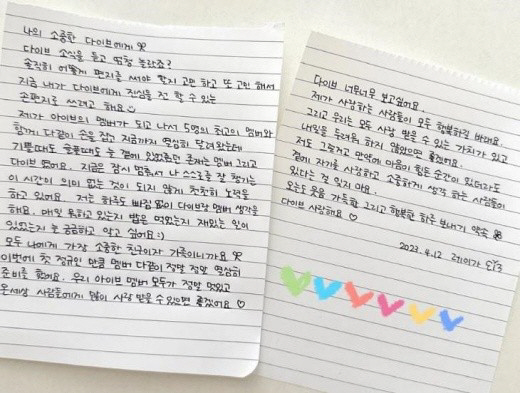 나의 소중한 다이브에게
다이브 소식을 듣고 엄청 놀랐죠?
솔직히 어떻게 편지를 써야 할지 고민 하고 또 고민 해서
지금 내가 다이브에게 진심을 전 할 수 있는
손편지를 쓰려고 해요
제가 아이브의 멤버가 되고 나서 5명의 최고의 멤버와
함께 다같이 손을 잡고 지금까지 열심히 달려왔는데
기쁠때도 슬플때도 늘 곁에 있어줬던 존재는 멤버 그리고
다이브 였어요. 지금은 잠시 멈춰서 나 스스로를 잘 챙기는
이 시간이 의미 없는 것이 되지 않게 천천히 노력을
하고 있어요. 저는 하루도 빠짐 없이 다이브랑 멤버 생각을
해요. 매일 뭐하고 있는지 밥은 먹었는지 재밌는 일이
있었는지 늘 궁금하고 알고 싶어요:)
모두 나에게 가장 소중한 친구이자 가족이니까요
이번에 첫 정규인 만큼 멤버 다같이 정말 정말 열심히
준비를 했어요. 우리 아이브 멤버 모두가 정말 멋있고
온세상 사람들에게 많이 사랑 받을 수 있었으면 좋겠어요 ♡
다이브 너무너무 보고싶어요.
제가 사랑하는 사람들이 모두 행복하길 바래요.
그리고 우리는 모두 사랑 받을 수 있는 가치가 있고
내일을 두려워 하지 않았으면 좋겠어요.
저도 그렇고 만약에 마음이 힘든 순간이 있더라도
곁에 자기를 사랑하고 소중하게 생각 하는 사람들이
있다는 걸 잊지 마요.
오늘도 웃음 가득한 그리고 행복한 하루 보내기 약속
다이브 사랑해요 ♡
2023.4.12 레이가